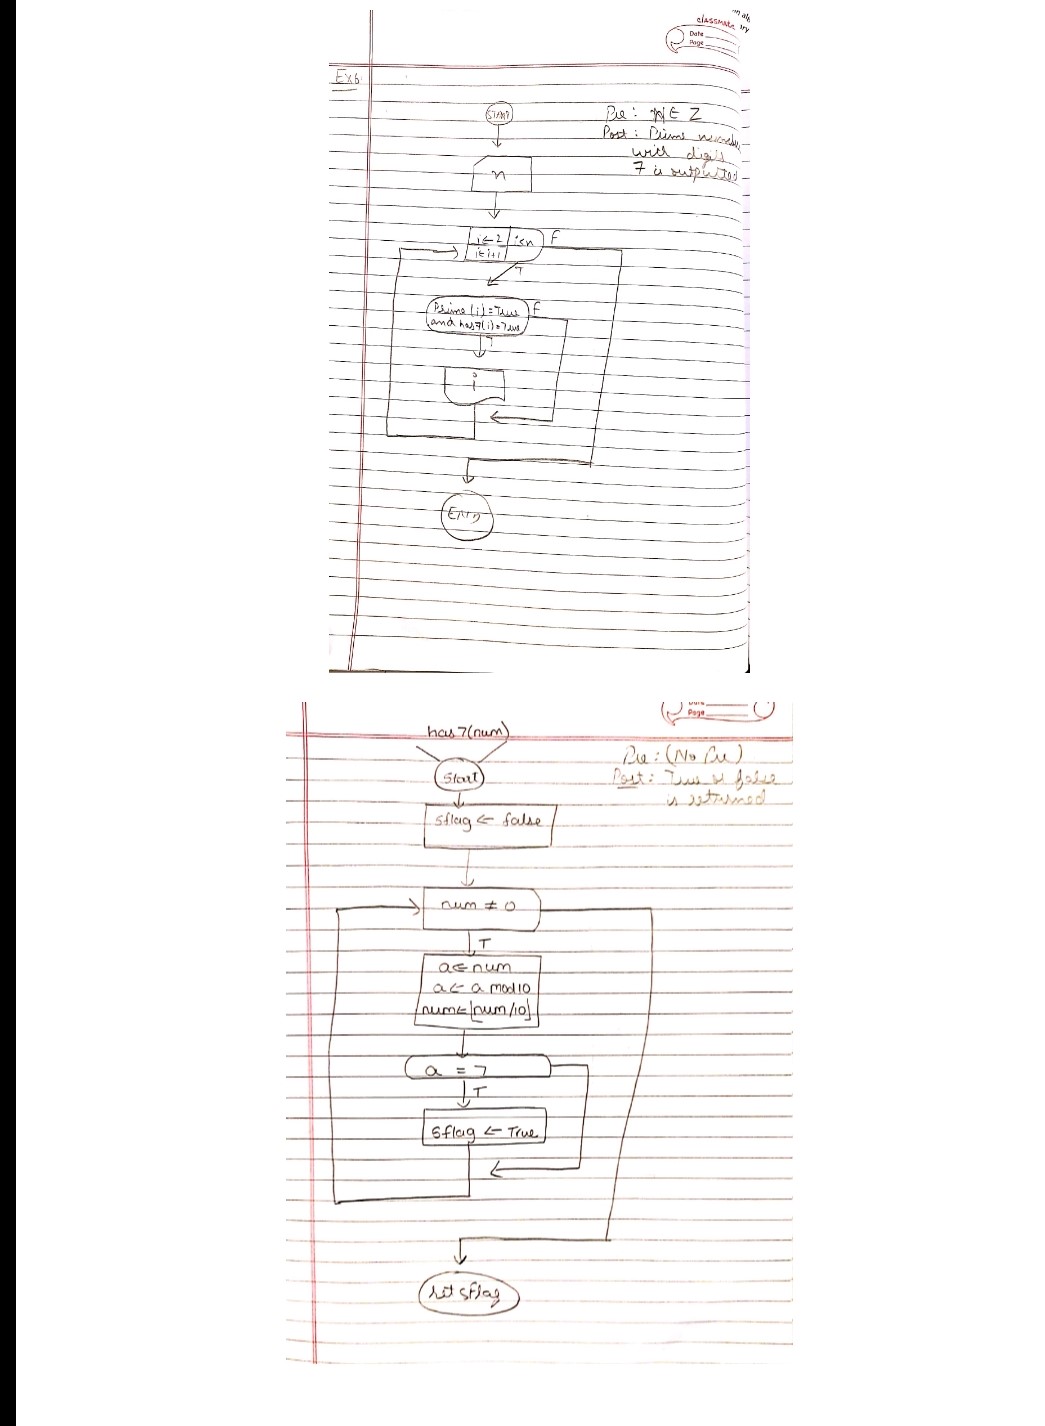 classmate
Date
Page
Ex6.
START
Pre: n ∈ Z
Post: Prime number
with digit
7 is outputted
n
i←2 | i<n
i←i+1
F
T
Prime(i)=True
and has7(i)=True
F
T
i
END
Date
Page
has7(num)
Start
Pre: (No Pre)
Post: True or false
is returned
sflag ← false
num ≠ 0
T
a←num
a← a mod10
num←⌊num/10⌋
a = 7
T
sflag ← True
ret sflag